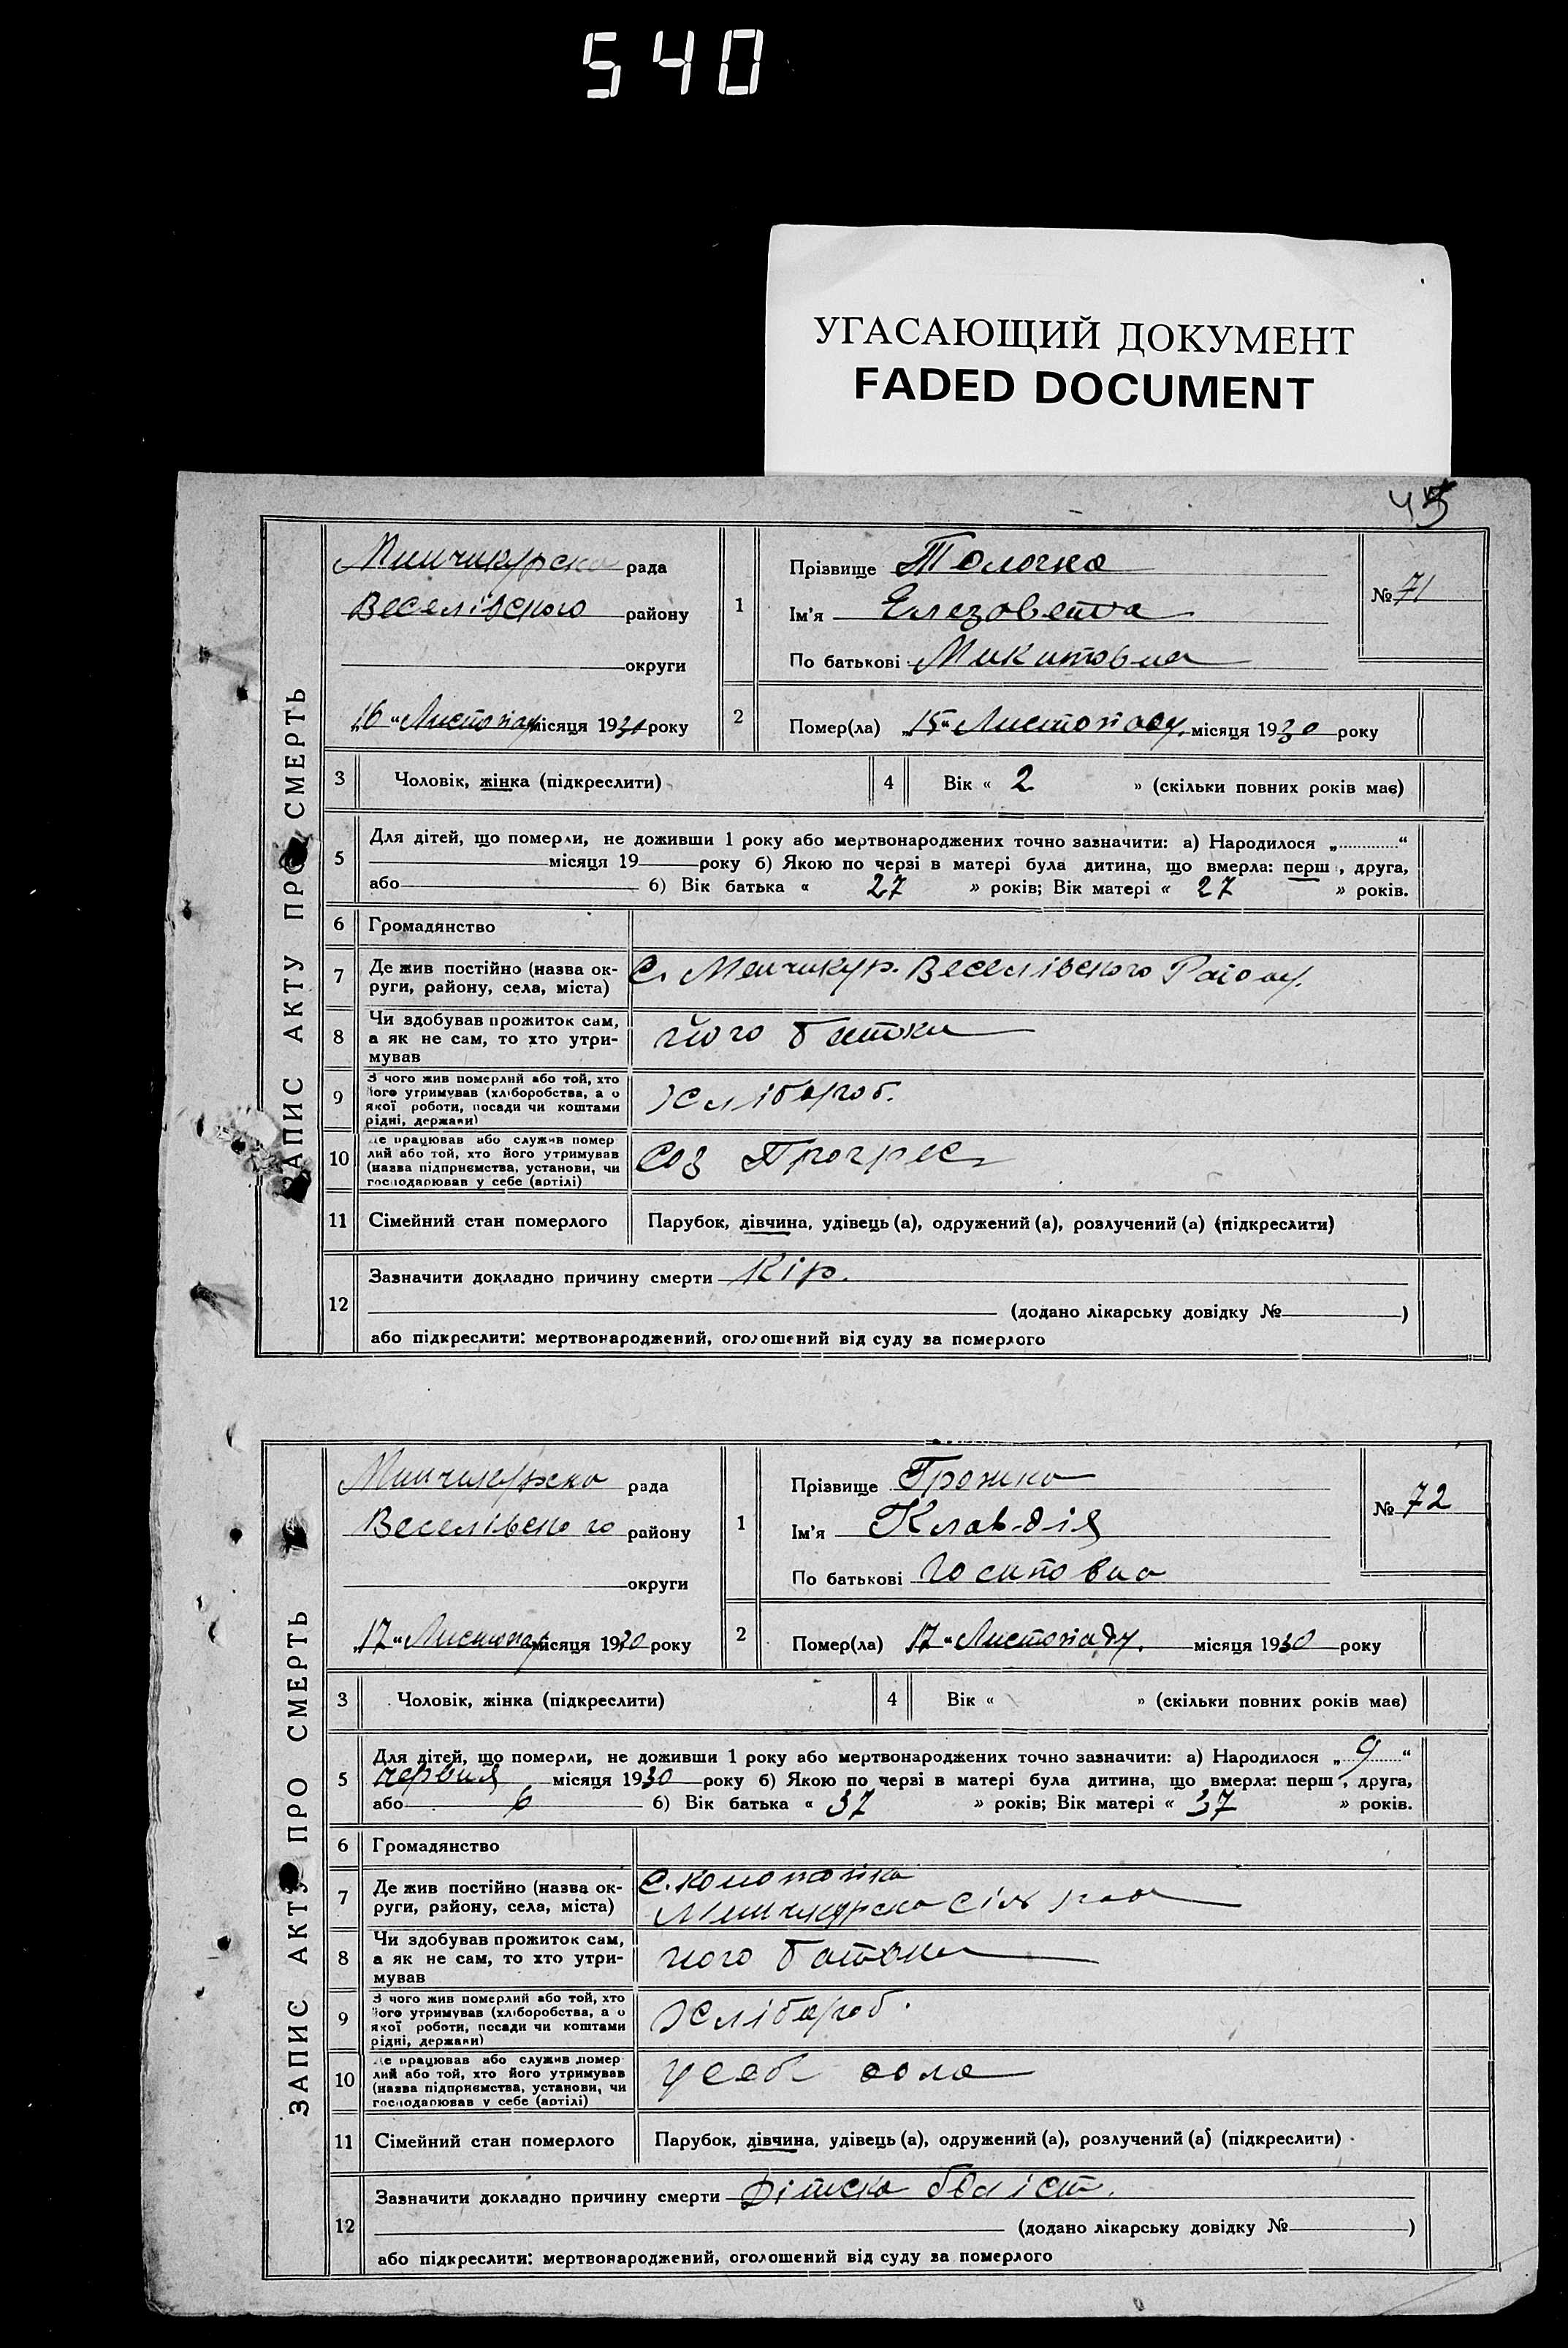 540
УГАСАЮЩИЙ ДОКУМЕНТ
FADED DOCUMENT
45
ЗАПИС АКТУ ПРО СМЕРТЬ
Минчикурска рада
Веселівского району
округи
„16“ Листопад місяця 1930 року
1 Прізвище Толочко
Ім'я Елезовета
По батькові Микитовна
№ 71
2 Помер(ла) „15“ Листопаду місяця 1930 року
3 Чоловік, жінка (підкреслити)
4 Вік « 2 » (скільки повних років має)
5 Для дітей, що померли, не доживши 1 року або мертвонароджених точно зазначити: а) Народилося „............“
місяця 19 року б) Якою по черзі в матері була дитина, що вмерла: перш, друга,
або б) Вік батька « 27 » років; Вік матері « 27 » років.
6 Громадянство
7 Де жив постійно (назва ок-
руги, району, села, міста) С. Менчикур. Веселівского Району.
8 Чи здобував прожиток сам,
а як не сам, то хто утри-
мував його батьки
9 З чого жив померлий або той, хто
його утримував (хліборобства, а о
якої роботи, посади чи коштами
рідні, держави) Хлібороб.
10 Де працював або служив помер
лий або той, хто його утримував
(назва підприємства, установи, чи
господарював у себе (артілі) Соз Прогрес
11 Сімейний стан померлого Парубок, дівчина, удівець (а), одружений (а), розлучений (а) (підкреслити)
12 Зазначити докладно причину смерти Кір.
(додано лікарську довідку № )
або підкреслити: мертвонароджений, оголошений від суду за померлого
ЗАПИС АКТУ ПРО СМЕРТЬ
Минчикурска рада
Веселівского району
округи
„17“ Листопад місяця 1930 року
1 Прізвище
Ім'я Клавдія
По батькові
№ 72
2 Помер(ла) „17“ Листопаду. місяця 1930 року
3 Чоловік, жінка (підкреслити)
4 Вік « » (скільки повних років має)
5 Для дітей, що померли, не доживши 1 року або мертвонароджених точно зазначити: а) Народилося „ 9 “
червня місяця 1930 року б) Якою по черзі в матері була дитина, що вмерла: перш, друга,
або 6 б) Вік батька « 37 » років; Вік матері « 37 » років.
6 Громадянство
7 Де жив постійно (назва ок-
руги, району, села, міста) С.
Минчикурска сіл рада
8 Чи здобував прожиток сам,
а як не сам, то хто утри-
мував його батьки
9 З чого жив померлий або той, хто
його утримував (хліборобства, а о
якої роботи, посади чи коштами
рідні, держави) Хлібороб.
10 Де працював або служив помер
лий або той, хто його утримував
(назва підприємства, установи, чи
господарював у себе (артілі)
11 Сімейний стан померлого Парубок, дівчина, удівець (а), одружений (а), розлучений (а) (підкреслити)
12 Зазначити докладно причину смерти Дітска
(додано лікарську довідку № )
або підкреслити: мертвонароджений, оголошений від суду за померлого